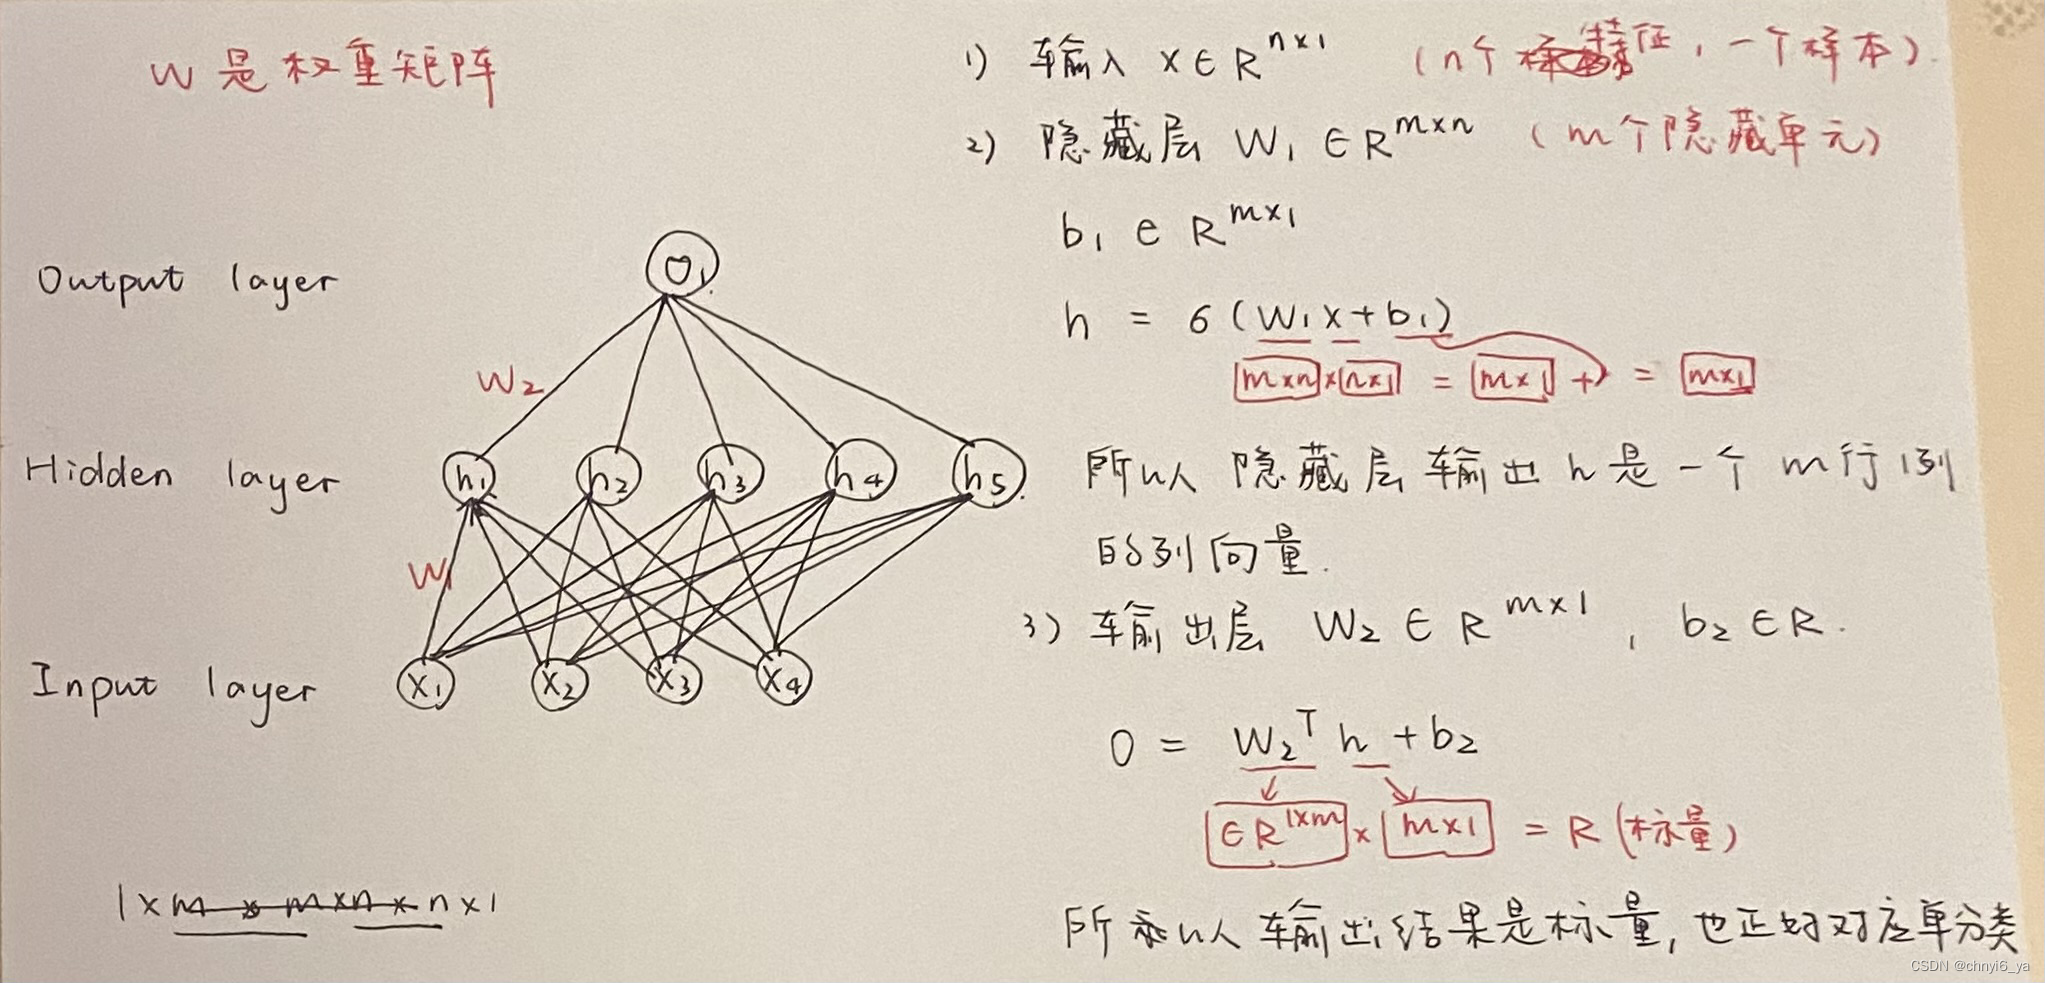 W是权重矩阵
Output layer
O₁
W₂
Hidden layer
h₁ h₂ h₃ h₄ h₅
W₁
Input layer
x₁ x₂ x₃ x₄
1×m × m×n × n×1
1) 输入 x∈R^{n×1} (n个特征，一个样本).
2) 隐藏层 W₁∈R^{m×n} (m个隐藏单元)
b₁∈R^{m×1}
h = б(W₁x+b₁)
m×n × n×1 = m×1 + = m×1
所以 隐藏层输出h是一个m行1列
的列向量.
3) 输出层 W₂∈R^{m×1}, b₂∈R.
O = W₂ᵀh+b₂
∈R^{1×m} × m×1 = R (标量)
所以输出结果是标量,也正好对应单分类
CSDN @chnyi6_ya